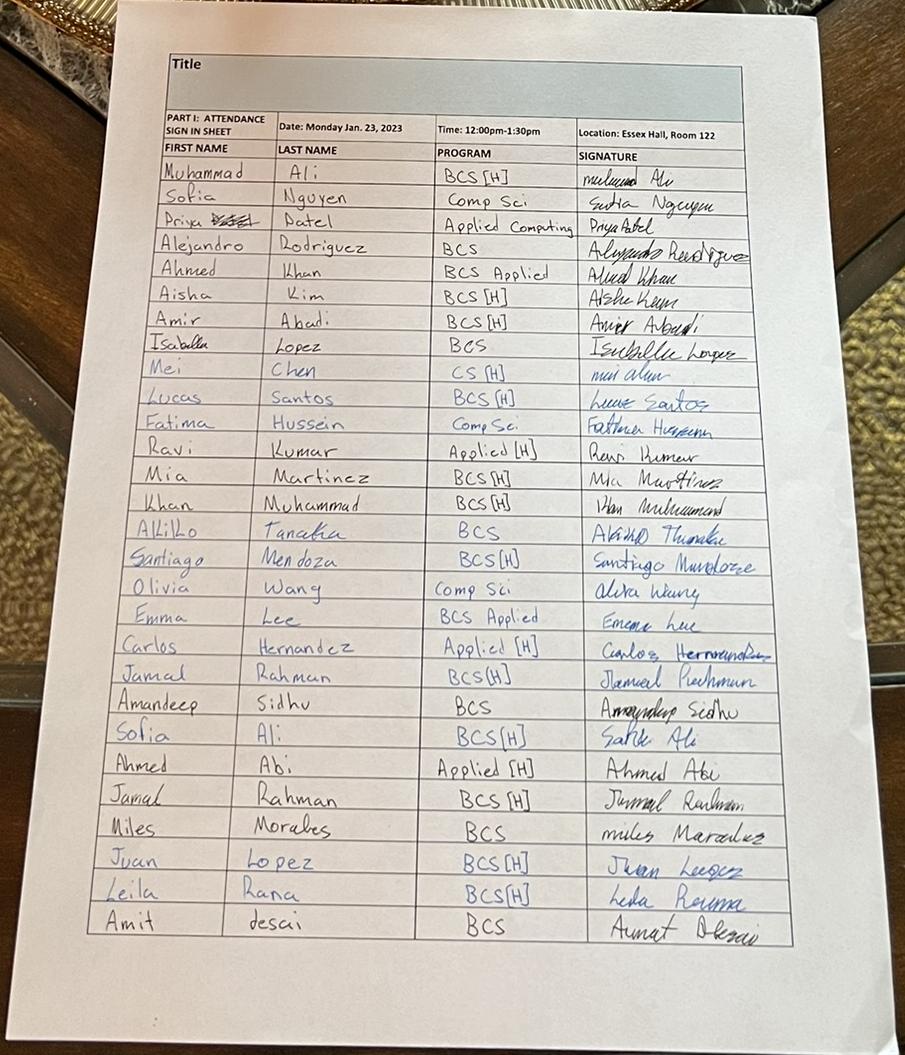 Title
PART I: ATTENDANCE SIGN IN SHEET Date: Monday Jan. 23, 2023 Time: 12:00pm-1:30pm Location: Essex Hall, Room 122
FIRST NAME LAST NAME PROGRAM SIGNATURE
Muhammad Ali BCS [H] Ali
Sofia Nguyen Comp Sci Nguyen
Priya Patel Applied Computing Priya Patel
Alejandro Rodriguez BCS Alejandro Rodriguez
Ahmed Khan BCS Applied Ahmed Khan
Aisha Kim BCS [H] Aisha
Amir Abadi BCS [H] Amir Abadi
Isabella Lopez BCS Isabella Lopez
Mei Chen CS [H] mei chen
Lucas Santos BCS [H] Lucas Santos
Fatima Hussein Comp Sci Fatima Hussein
Ravi Kumar Applied [H] Ravi Kumar
Mia Martinez BCS [H] Mia Martinez
Khan Muhammad BCS [H] Khan Muhammad
Akiko Tanaka BCS
Santiago Mendoza BCS [H] Santiago Mendoza
Olivia Wang Comp Sci Wang
Emma Lee BCS Applied Emma Lee
Carlos Hernandez Applied [H] Carlos Hernandez
Jamal Rahman BCS [H] Jamal Rahman
Amandeep Sidhu BCS Amandeep Sidhu
Sofia Ali BCS [H] Ali
Ahmed Abi Applied [H] Ahmed Abi
Jamal Rahman BCS [H] Jamal Rahman
Miles Morales BCS miles Morales
Juan Lopez BCS [H] Juan Lopez
Leila Rana BCS [H] Leila
Amit desai BCS Desai